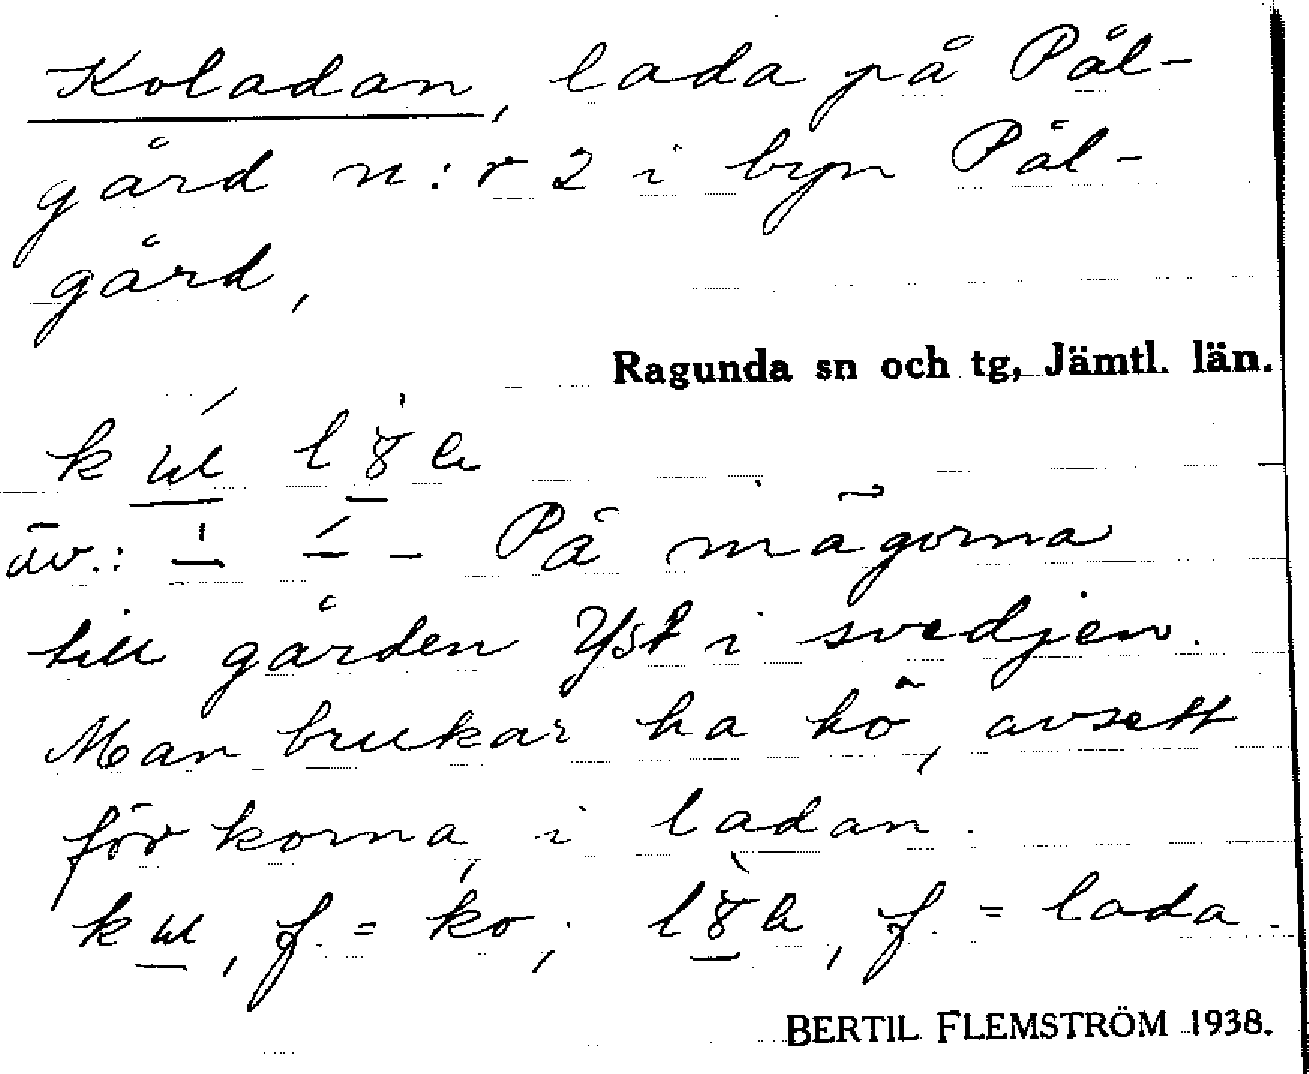 Koladan, lada på Pål-
gård n:r 2 i byn Pål-
gård,
Ragunda sn och tg, Jämtl. län.
äv.: På mågorna
till gården Yst i svedjen.
Man brukar ha hö, avsett
för korna, i ladan.
f. = ko; f. = lada.
BERTIL FLEMSTRÖM 1938.